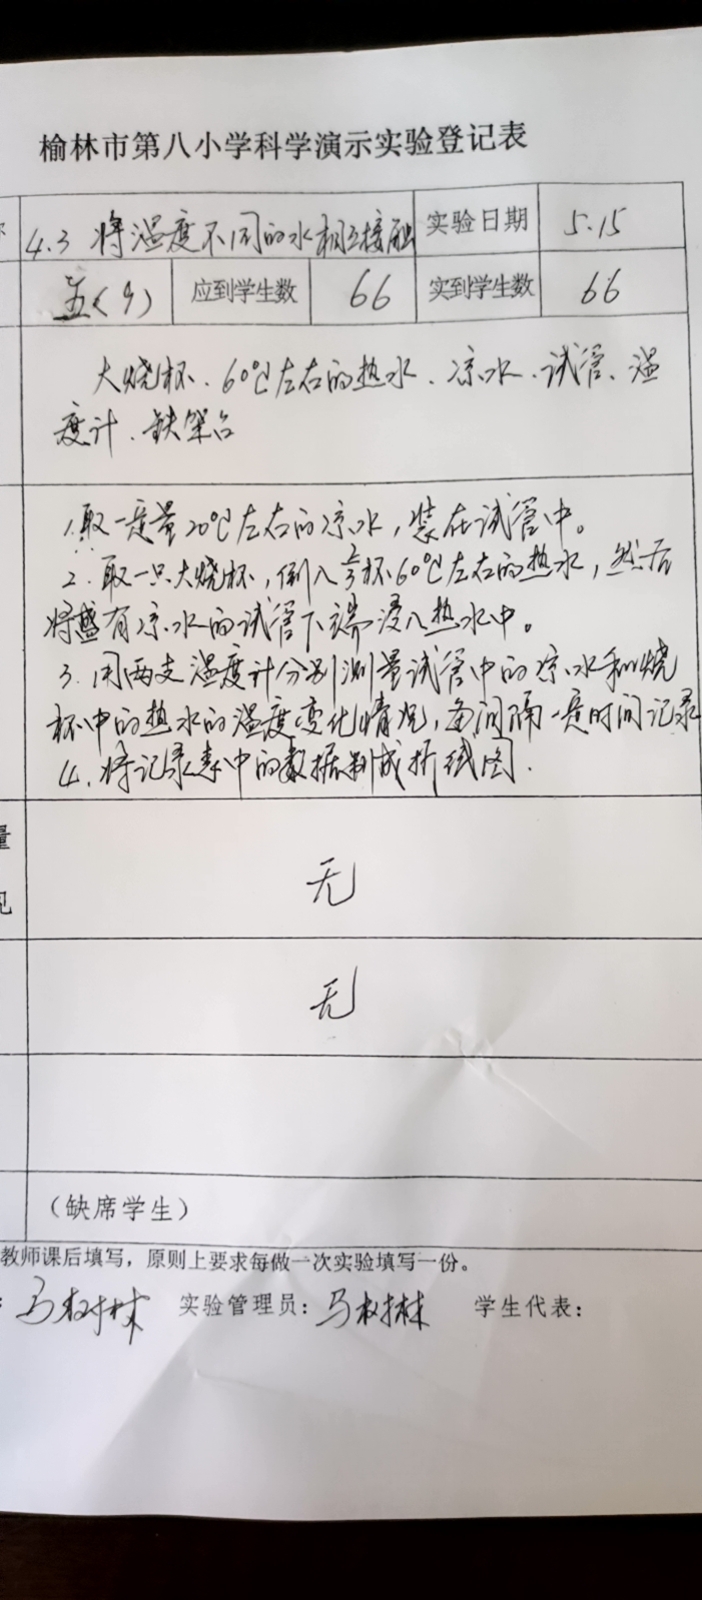 榆林市第八小学科学演示实验登记表
4.3 将温度不同的水相互接触 实验日期 5.15
五(9) 应到学生数 66 实到学生数 66
大烧杯、60℃左右的热水、凉水、试管、温
度计、铁架台
1.取一定量20℃左右的凉水，装在试管中。
2.取一只大烧杯，倒入2/3杯60℃左右的热水，然后
将盛有凉水的试管下端浸入热水中。
3.用两支温度计分别测量试管中的凉水和烧
杯中的热水的温度变化情况，每间隔一定时间记录
4.将记录表中的数据制成折线图.
量
见
无
无
（缺席学生）
教师课后填写，原则上要求每做一次实验填写一份。
马树林 实验管理员：马树林 学生代表：